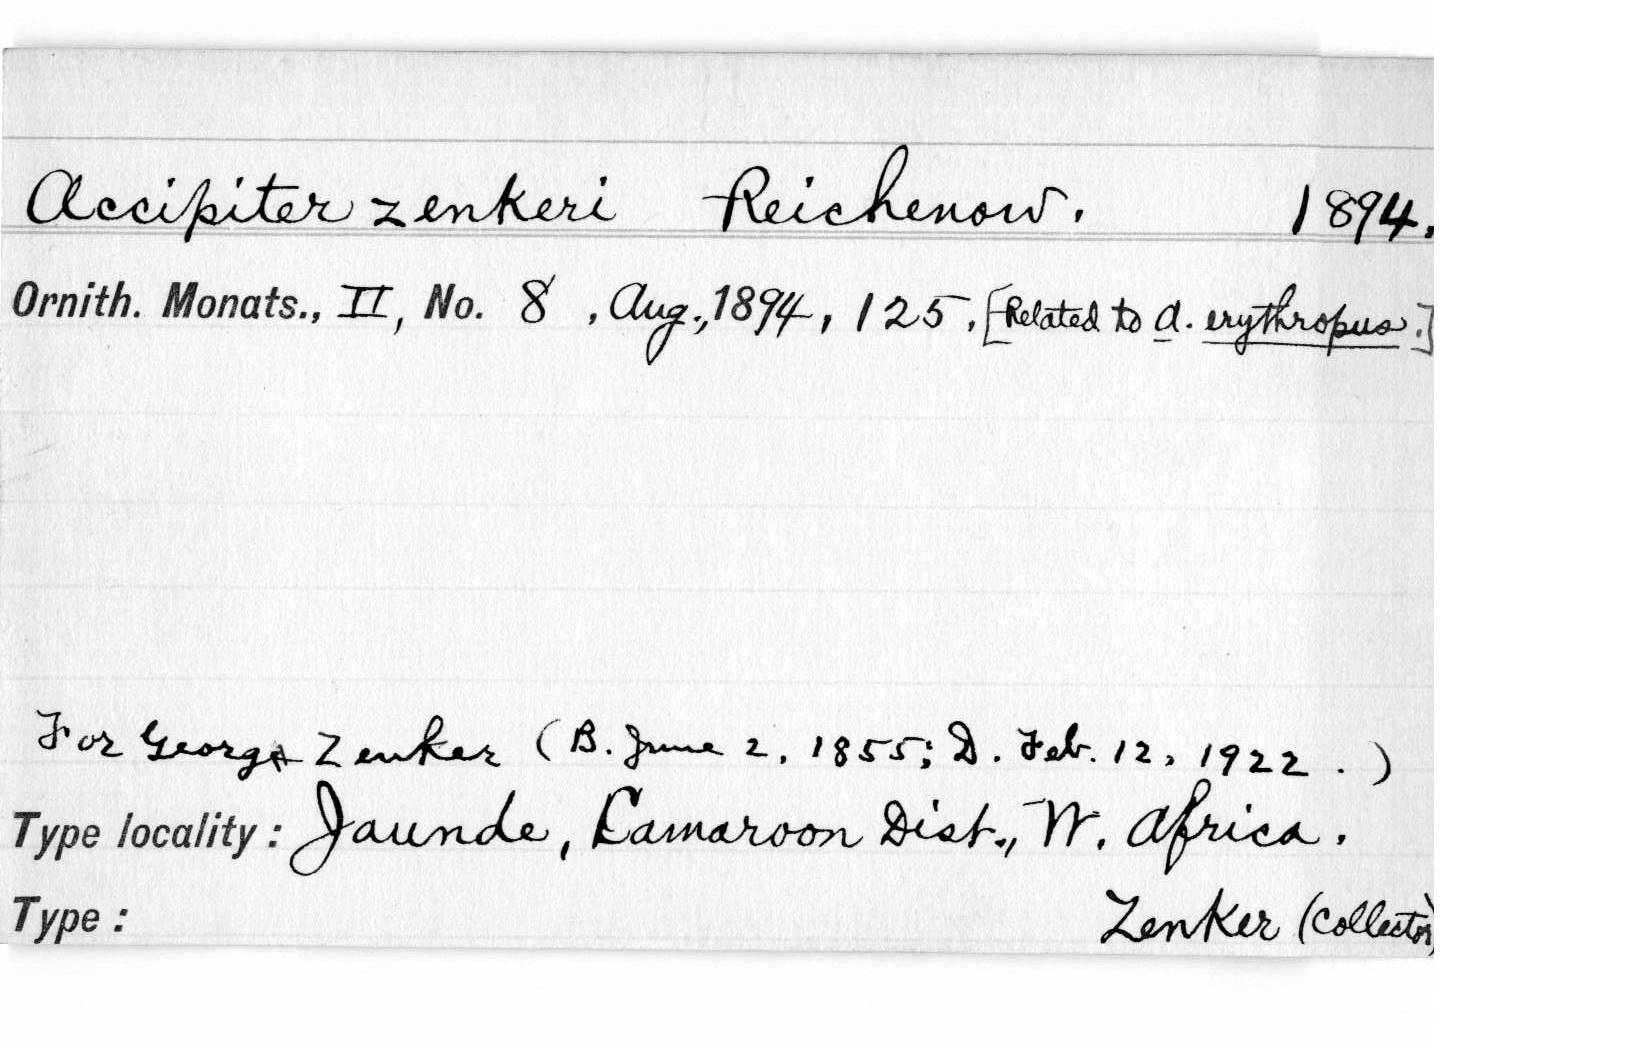 Accipiter zenkeri Reichenow. 1894.
Ornith. Monats., II, No. 8, Aug., 1894, 125. [Related to A. erythropus.]
For George Zenker (B. June 2, 1855; D. Feb. 12, 1922.)
Type locality: Jaunde, Camaroon Dist., W. Africa.
Type: Zenker (Collector)